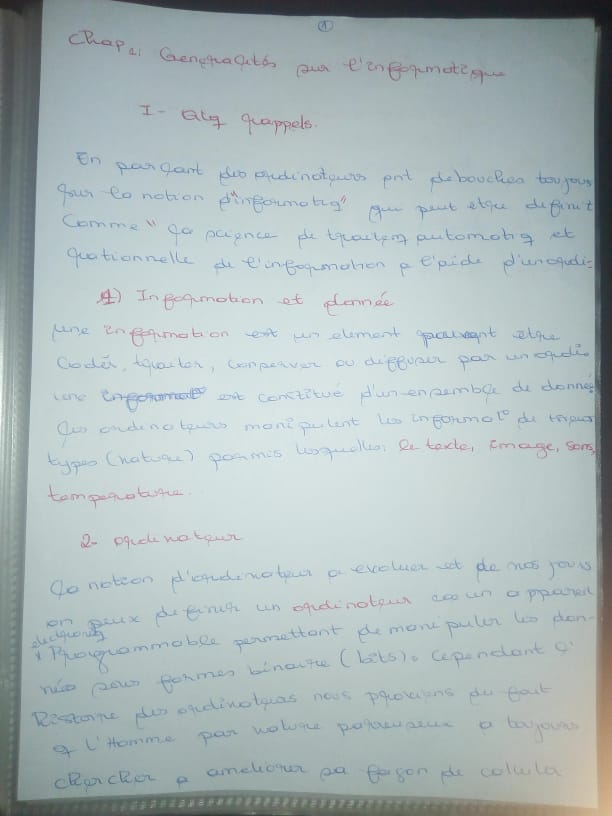 1
Chap 1: Generalités sur l'informatique
I- Qlq rappels.
En parlant des ordinateurs ont debouches toujours
sur la notion d'"informatiq" qui peut etre definit
Comme " la science de traitem automatiq et
rationnelle de l'information a l'aide d'un ordi-
1) Information et donnée
une information est un element pouvant etre
Coder, traiter, conserver ou diffuser par un ordi
une est constitué d'un ensemble de donnés
les ordinateurs manipulent les informat° de
types (nature) parmis lesquelles: le texte, image, sons,
temperature.
2- ordinateur
La notion d'ordinateur a evoluer et de nos jours
on peux definir un ordinateur un appareil
electroniq
Programmable permettant de manipuler les don-
nées sous formes binaire (bits). Cependant l'
histoire des ordinateurs nous du fait
q l'Homme par nature paresseux a toujours
chercher a ameliorer sa façon de calculer